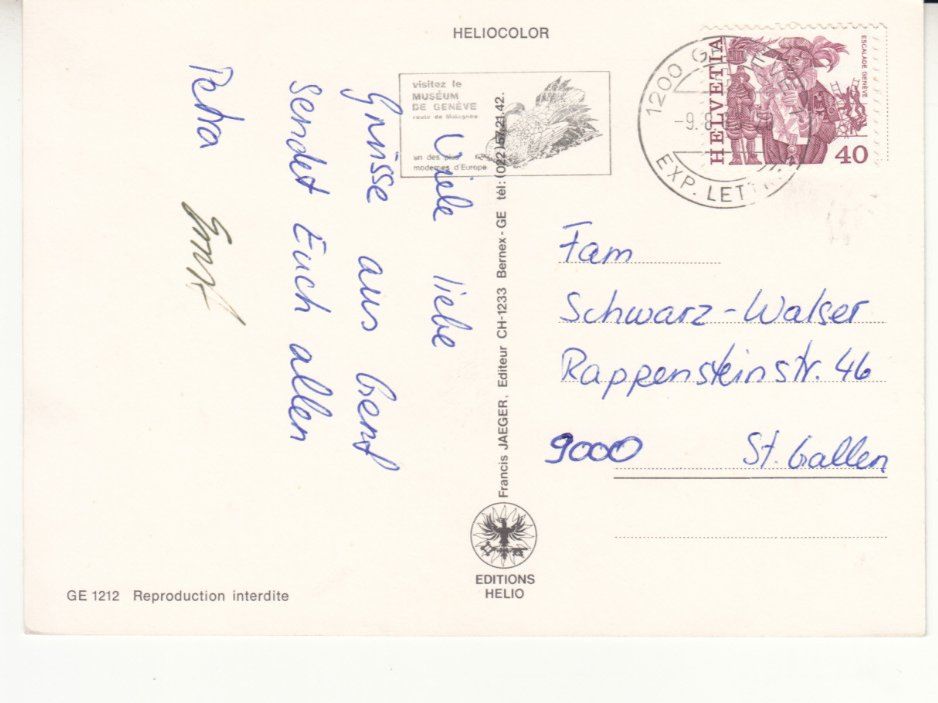 HELIOCOLOR
visitez le
MUSÉUM
DE GENÈVE
route de Malagnou
un des plus
modernes d'Europe
1200 G
-9.8
EXP. LETT
HELVETIA
ESCALADE GENÈVE
40
Viele liebe
Grüsse aus Genf
sendet Euch allen
Petra
Fam
Schwarz-Walser
Rappensteinstr. 46
9000 St. Gallen
Francis JAEGER, Editeur CH-1233 Bernex-GE tél: (022) 57.21.42.
EDITIONS
HELIO
GE 1212 Reproduction interdite